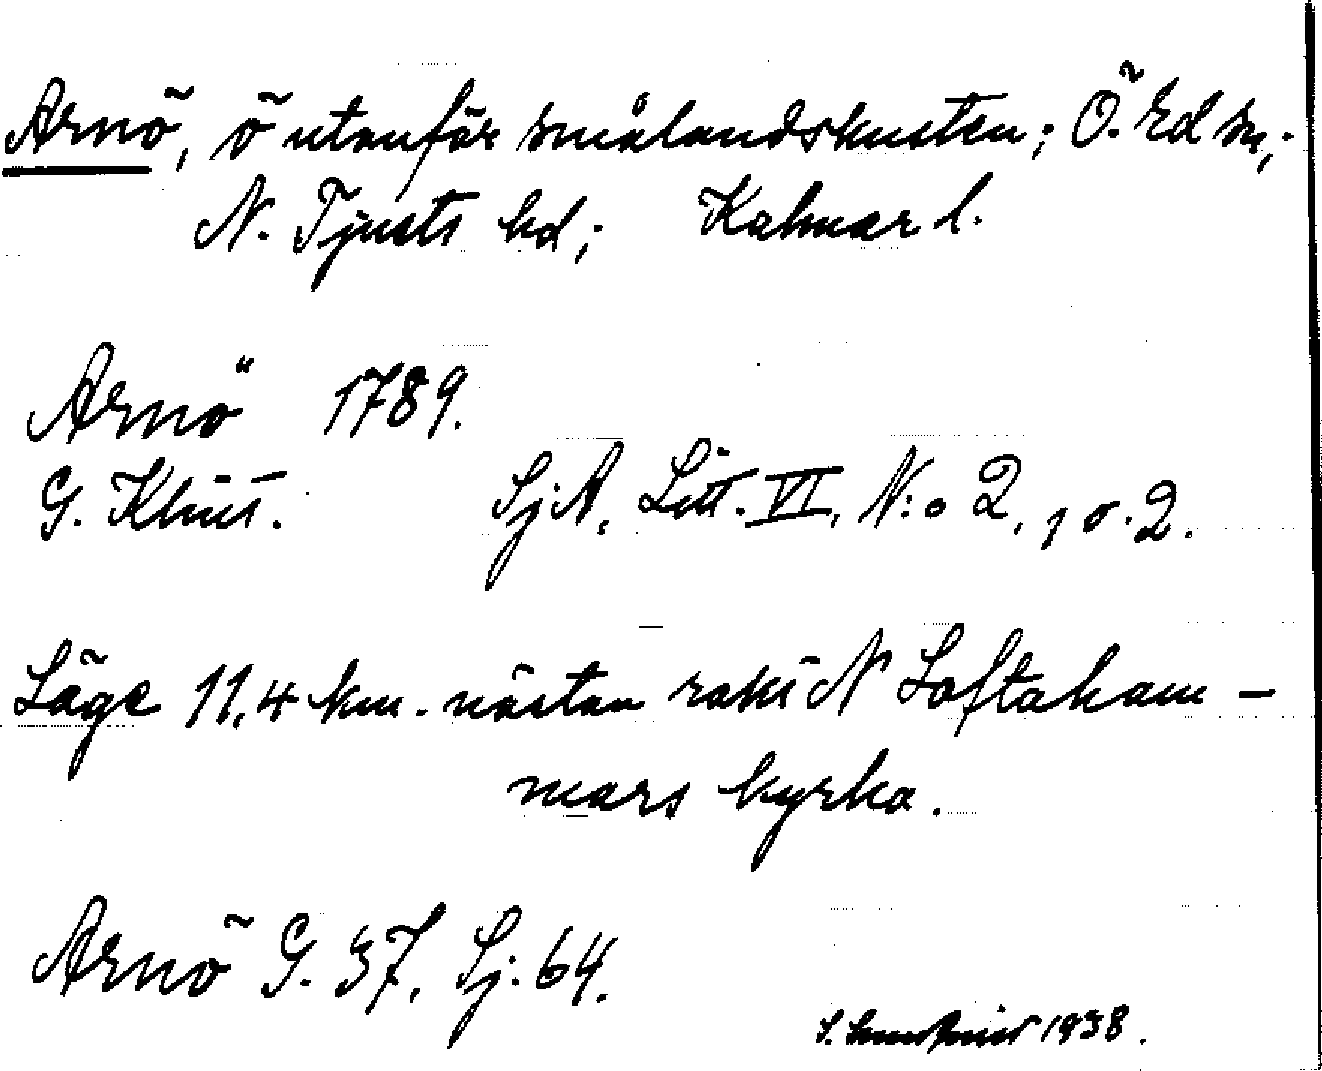 Arnö, ö utanför smålandskusten; Ö. Ed sn,;
N. Tjusts hd; Kalmar l.
Arnö 1789.
G. Klint. Sj.A, Litt. VI, N:o 2, 1 o. 2.
Läge 11,4 km. nästan rakt N Loftaham-
mars kyrka.
Arnö G. 37, Sj. 64.
S. 1938.